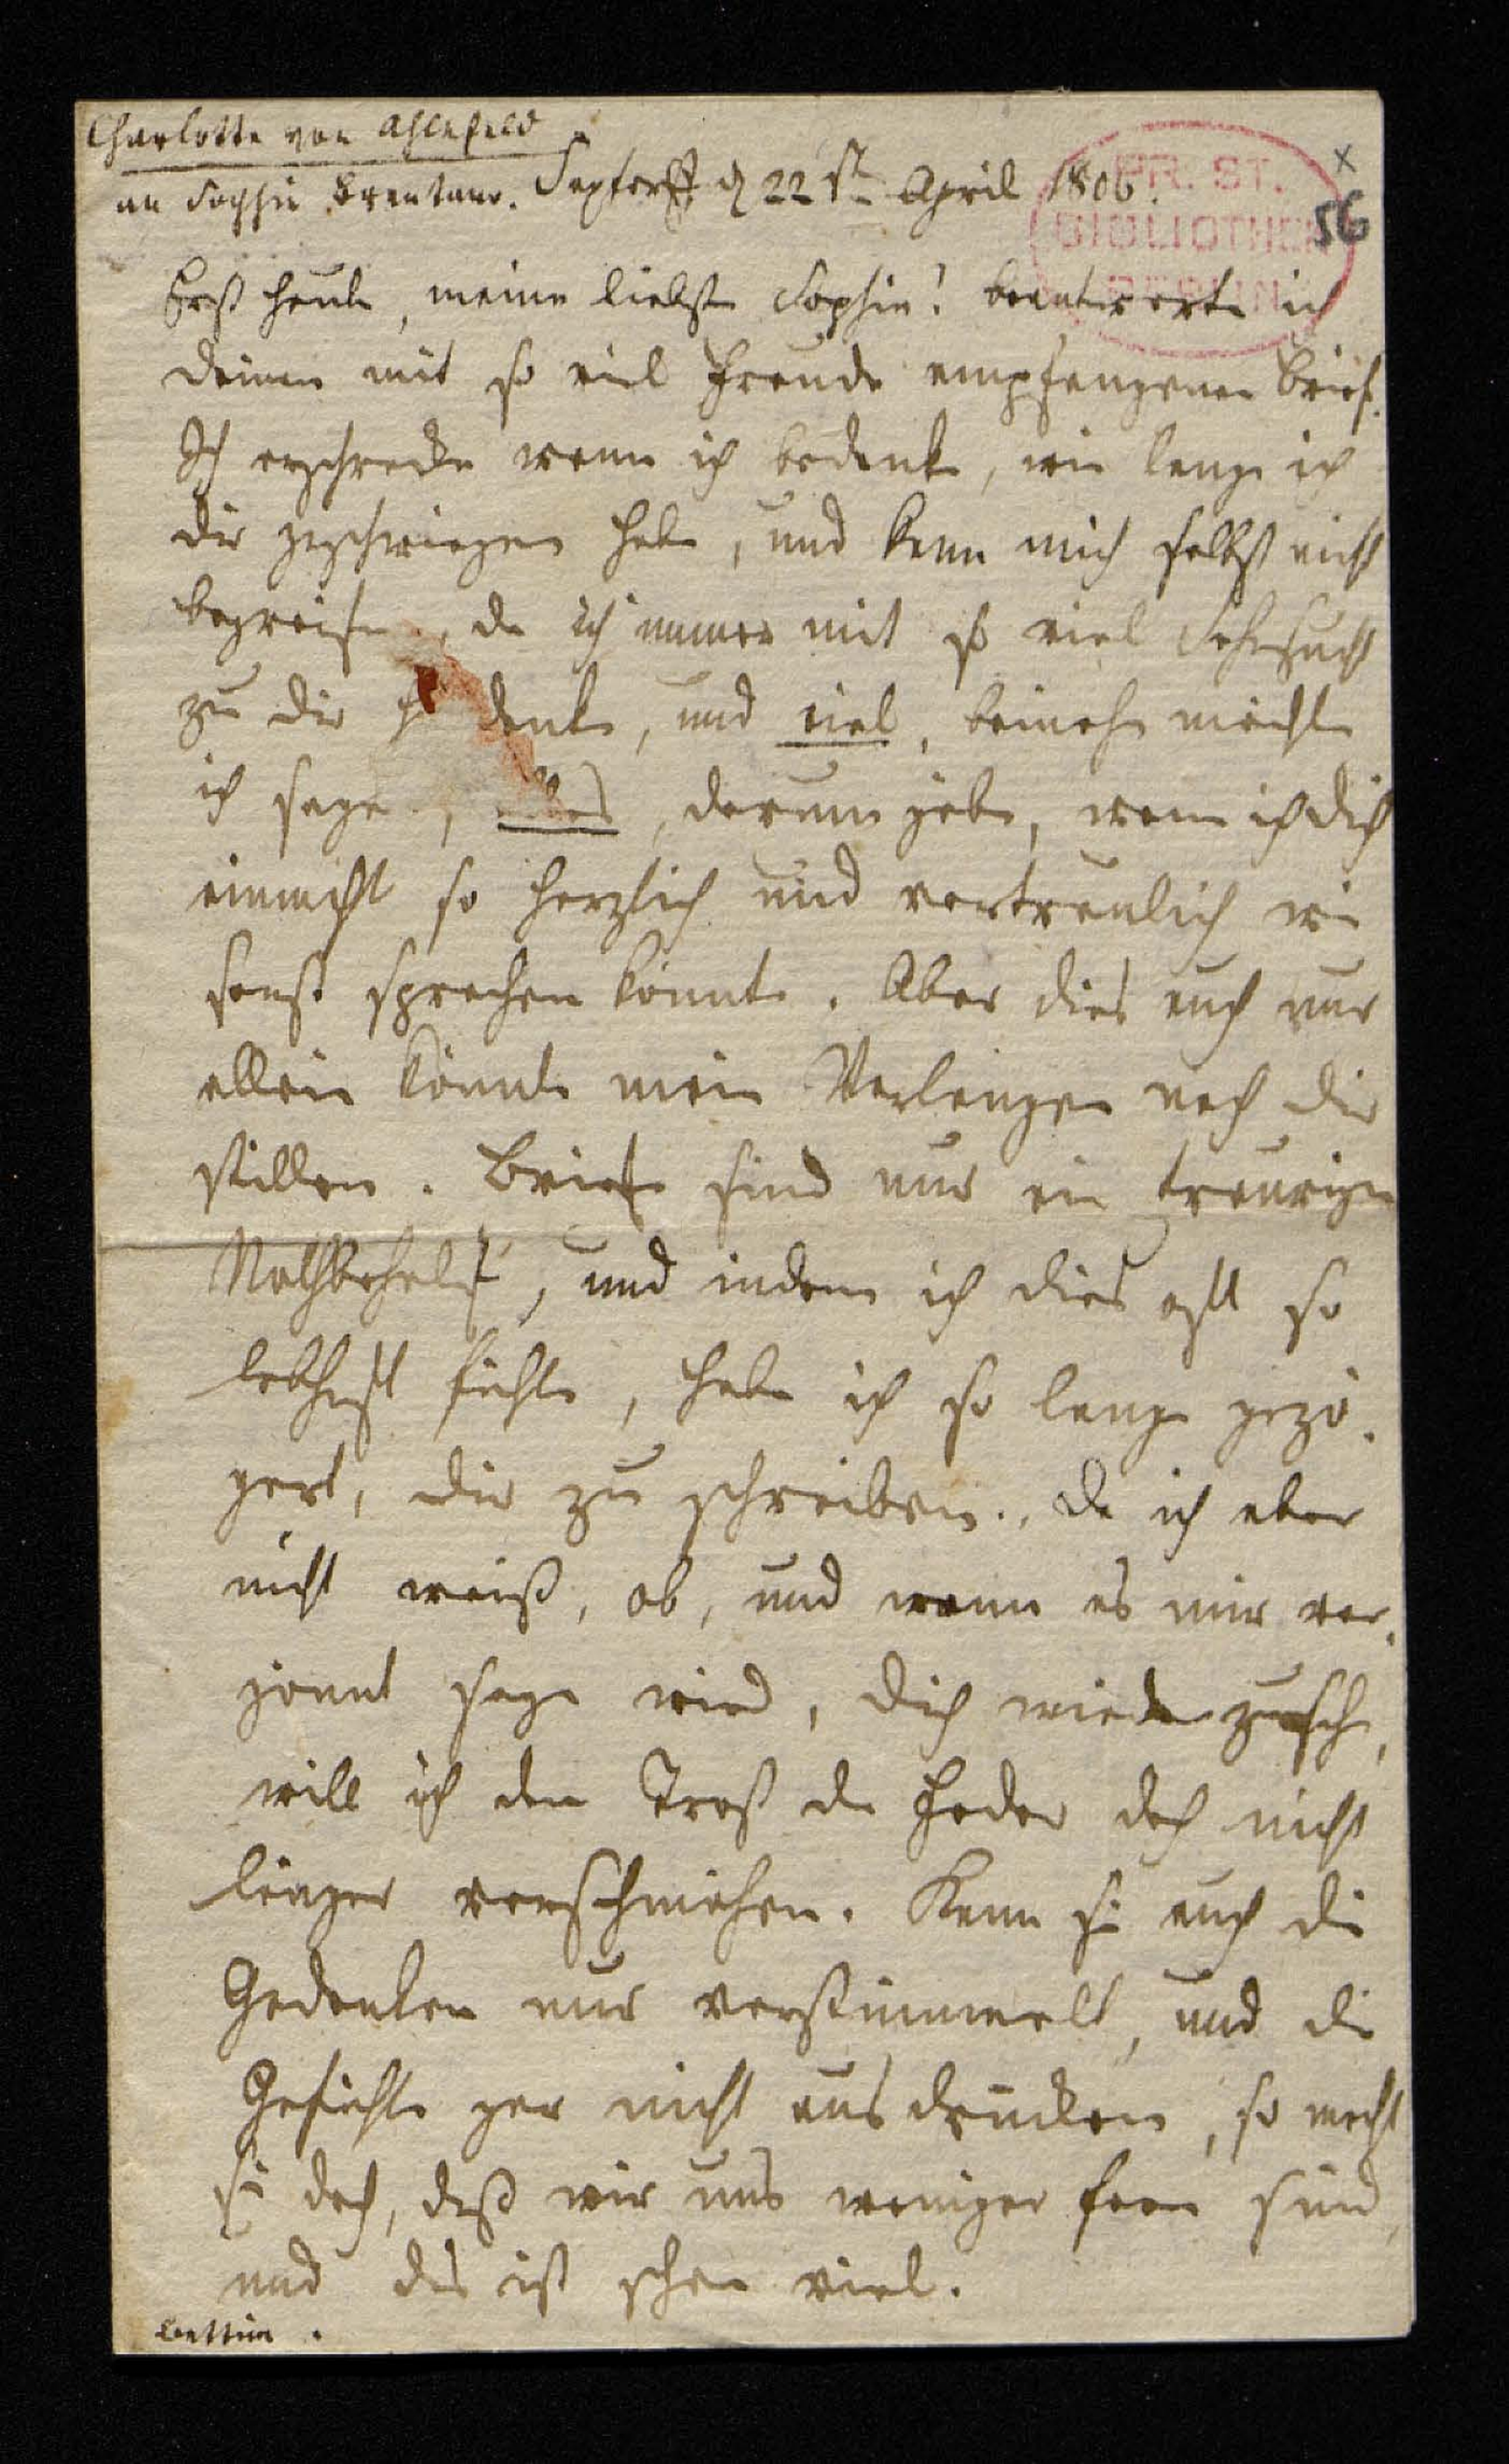 Charlotte von Ahlefeld
an Sophie Brentano. Saxtorff, d 22st April 1806.
PR. ST.
BIBLIOTHEK
BERLIN
x
56
Erst heute, meine liebste Sophie! beantworte ich
deinen mit so viel Freude empfangenen Brief.
Ich erschrecke wenn ich bedenke, wie lange ich
dir geschwiegen habe, und kann mich selbst nicht
begreifen, da ich immer mit so viel Sehnsucht
zu dir hi denke, und viel, beinahe möchte
ich sagen, alles, darum gäbe, wenn ich dich
einmahl so herzlich und vertraulich wie
sonst sprechen könnte. Aber dies auch nur
allein könnte mein Verlangen nach dir
stillen. Briefe sind nur ein trauriger
Nothbehelf, und indem ich dies oft so
lebhaft fühle, habe ich so lange gezö-
gert, dir zu schreiben., da ich aber
nicht weiß, ob, und wann es mir ver-
gönnt seyn wird, dich wiederzusehn,
will ich den Trost der Feder doch nicht
länger verschmähen. Kann sie auch die
Gedanken nur verstümmelt, und die
Gefühle gar nicht ausdrücken, so macht
sie doch, daß wir uns weniger fern sind,
und das ist schon viel.
bettine.